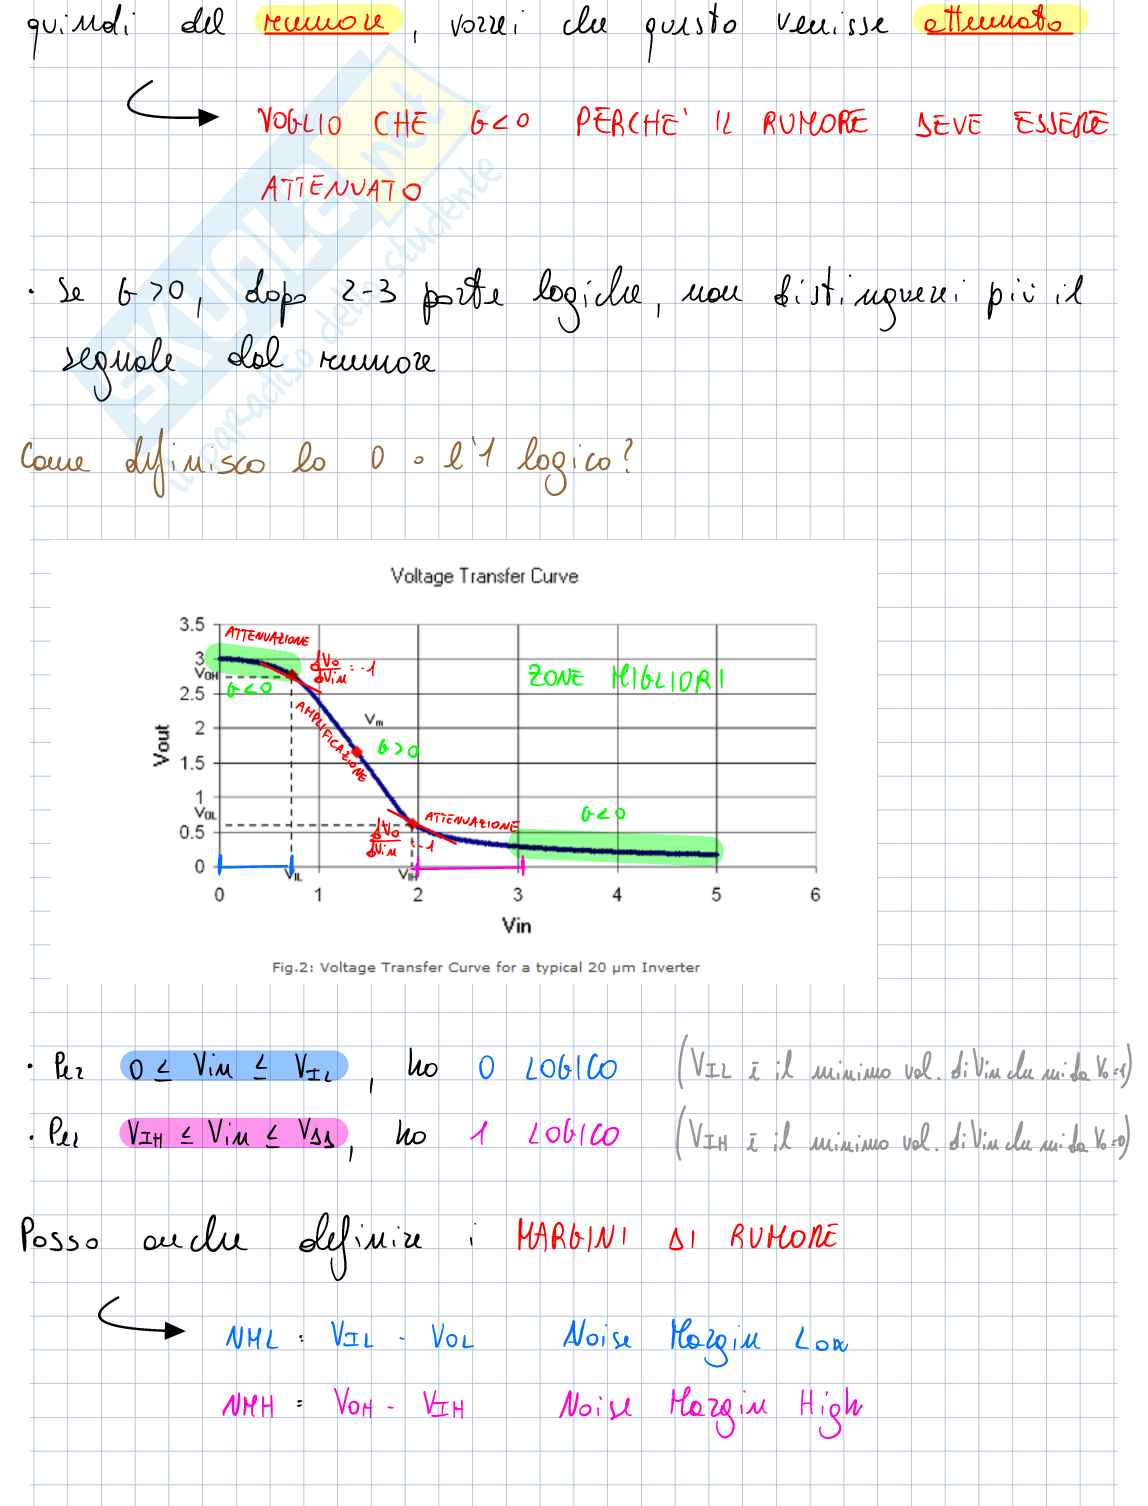 quindi del rumore, vorrei che questo venisse attenuato
VOGLIO CHE G<0 PERCHE' IL RUMORE DEVE ESSERE
ATTENUATO
· Se G>0, dopo 2-3 porte logiche, non distinguerei più il
segnale dal rumore
Come definisco lo 0 o l'1 logico?
Voltage Transfer Curve
3.5
ATTENUAZIONE
3
VOH
dVo/dVin = -1
G<0
ZONE MIGLIORI
2.5
AMPLIFICAZIONE
Vm
2
G>0
Vout
1.5
1
VOL
ATTENUAZIONE
G<0
0.5
dVo/dVin = -1
0
VIL
VIH
0 1 2 3 4 5 6
Vin
Fig.2: Voltage Transfer Curve for a typical 20 µm Inverter
· Per 0 ≤ Vin ≤ VIL, ho 0 LOGICO (VIL è il minimo val. di Vin che mi da Vo=1)
· Per VIH ≤ Vin ≤ VDD, ho 1 LOGICO (VIH è il minimo val. di Vin che mi da Vo=0)
Posso anche definire i MARGINI DI RUMORE
NML = VIL - VOL Noise Margin Low
NMH = VOH - VIH Noise Margin High
SKUOLA.net
il paradiso dello studente